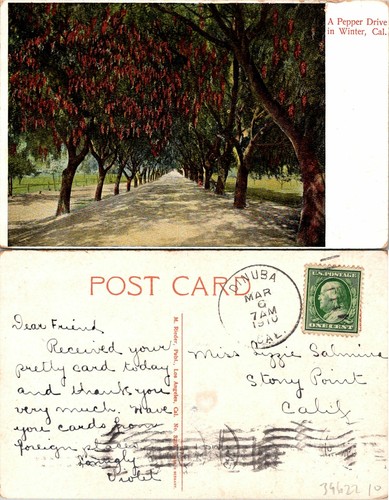 A Pepper Drive
in Winter, Cal.
POST CARD
DINUBA
MAR
6
7 AM
1910
CAL.
U.S. POSTAGE
ONE CENT
Dear Friend
Received your
pretty card today
and thanks you
very much. Have
you cards from
foreign
Violet
M. Rieder, Publ., Los Angeles, Cal. No.
Miss Lizzie
Stony Point
Calif
39622 10